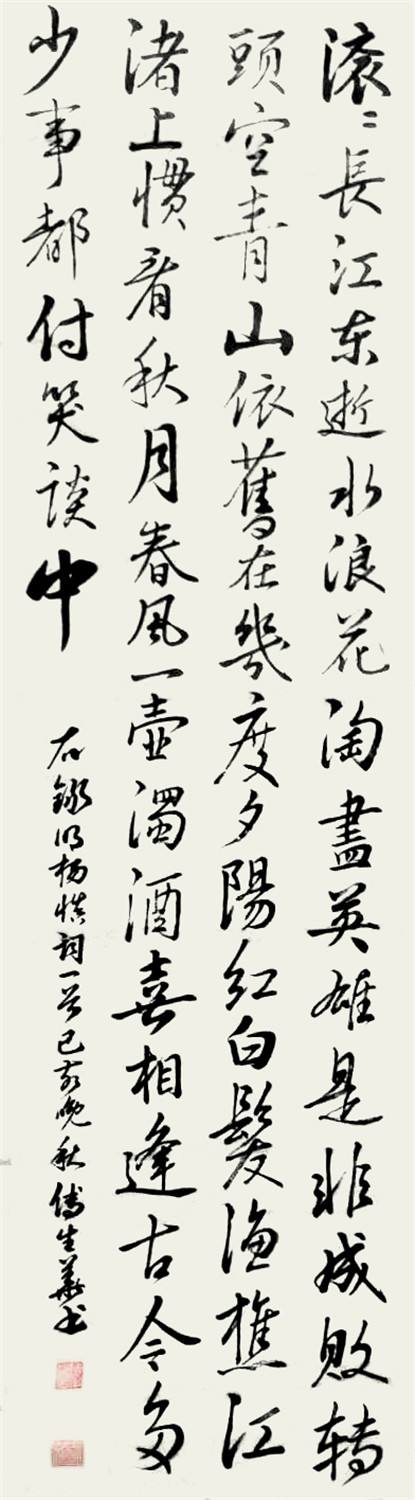 滚〻長江东逝水浪花淘盡英雄是非成败转
頭空青山依舊在幾度夕陽红白髮渔樵江
渚上惯看秋月春风一壶濁酒喜相逢古今多
少事都付笑談中
右錄明杨慎詞一首己亥晚秋傅生華书